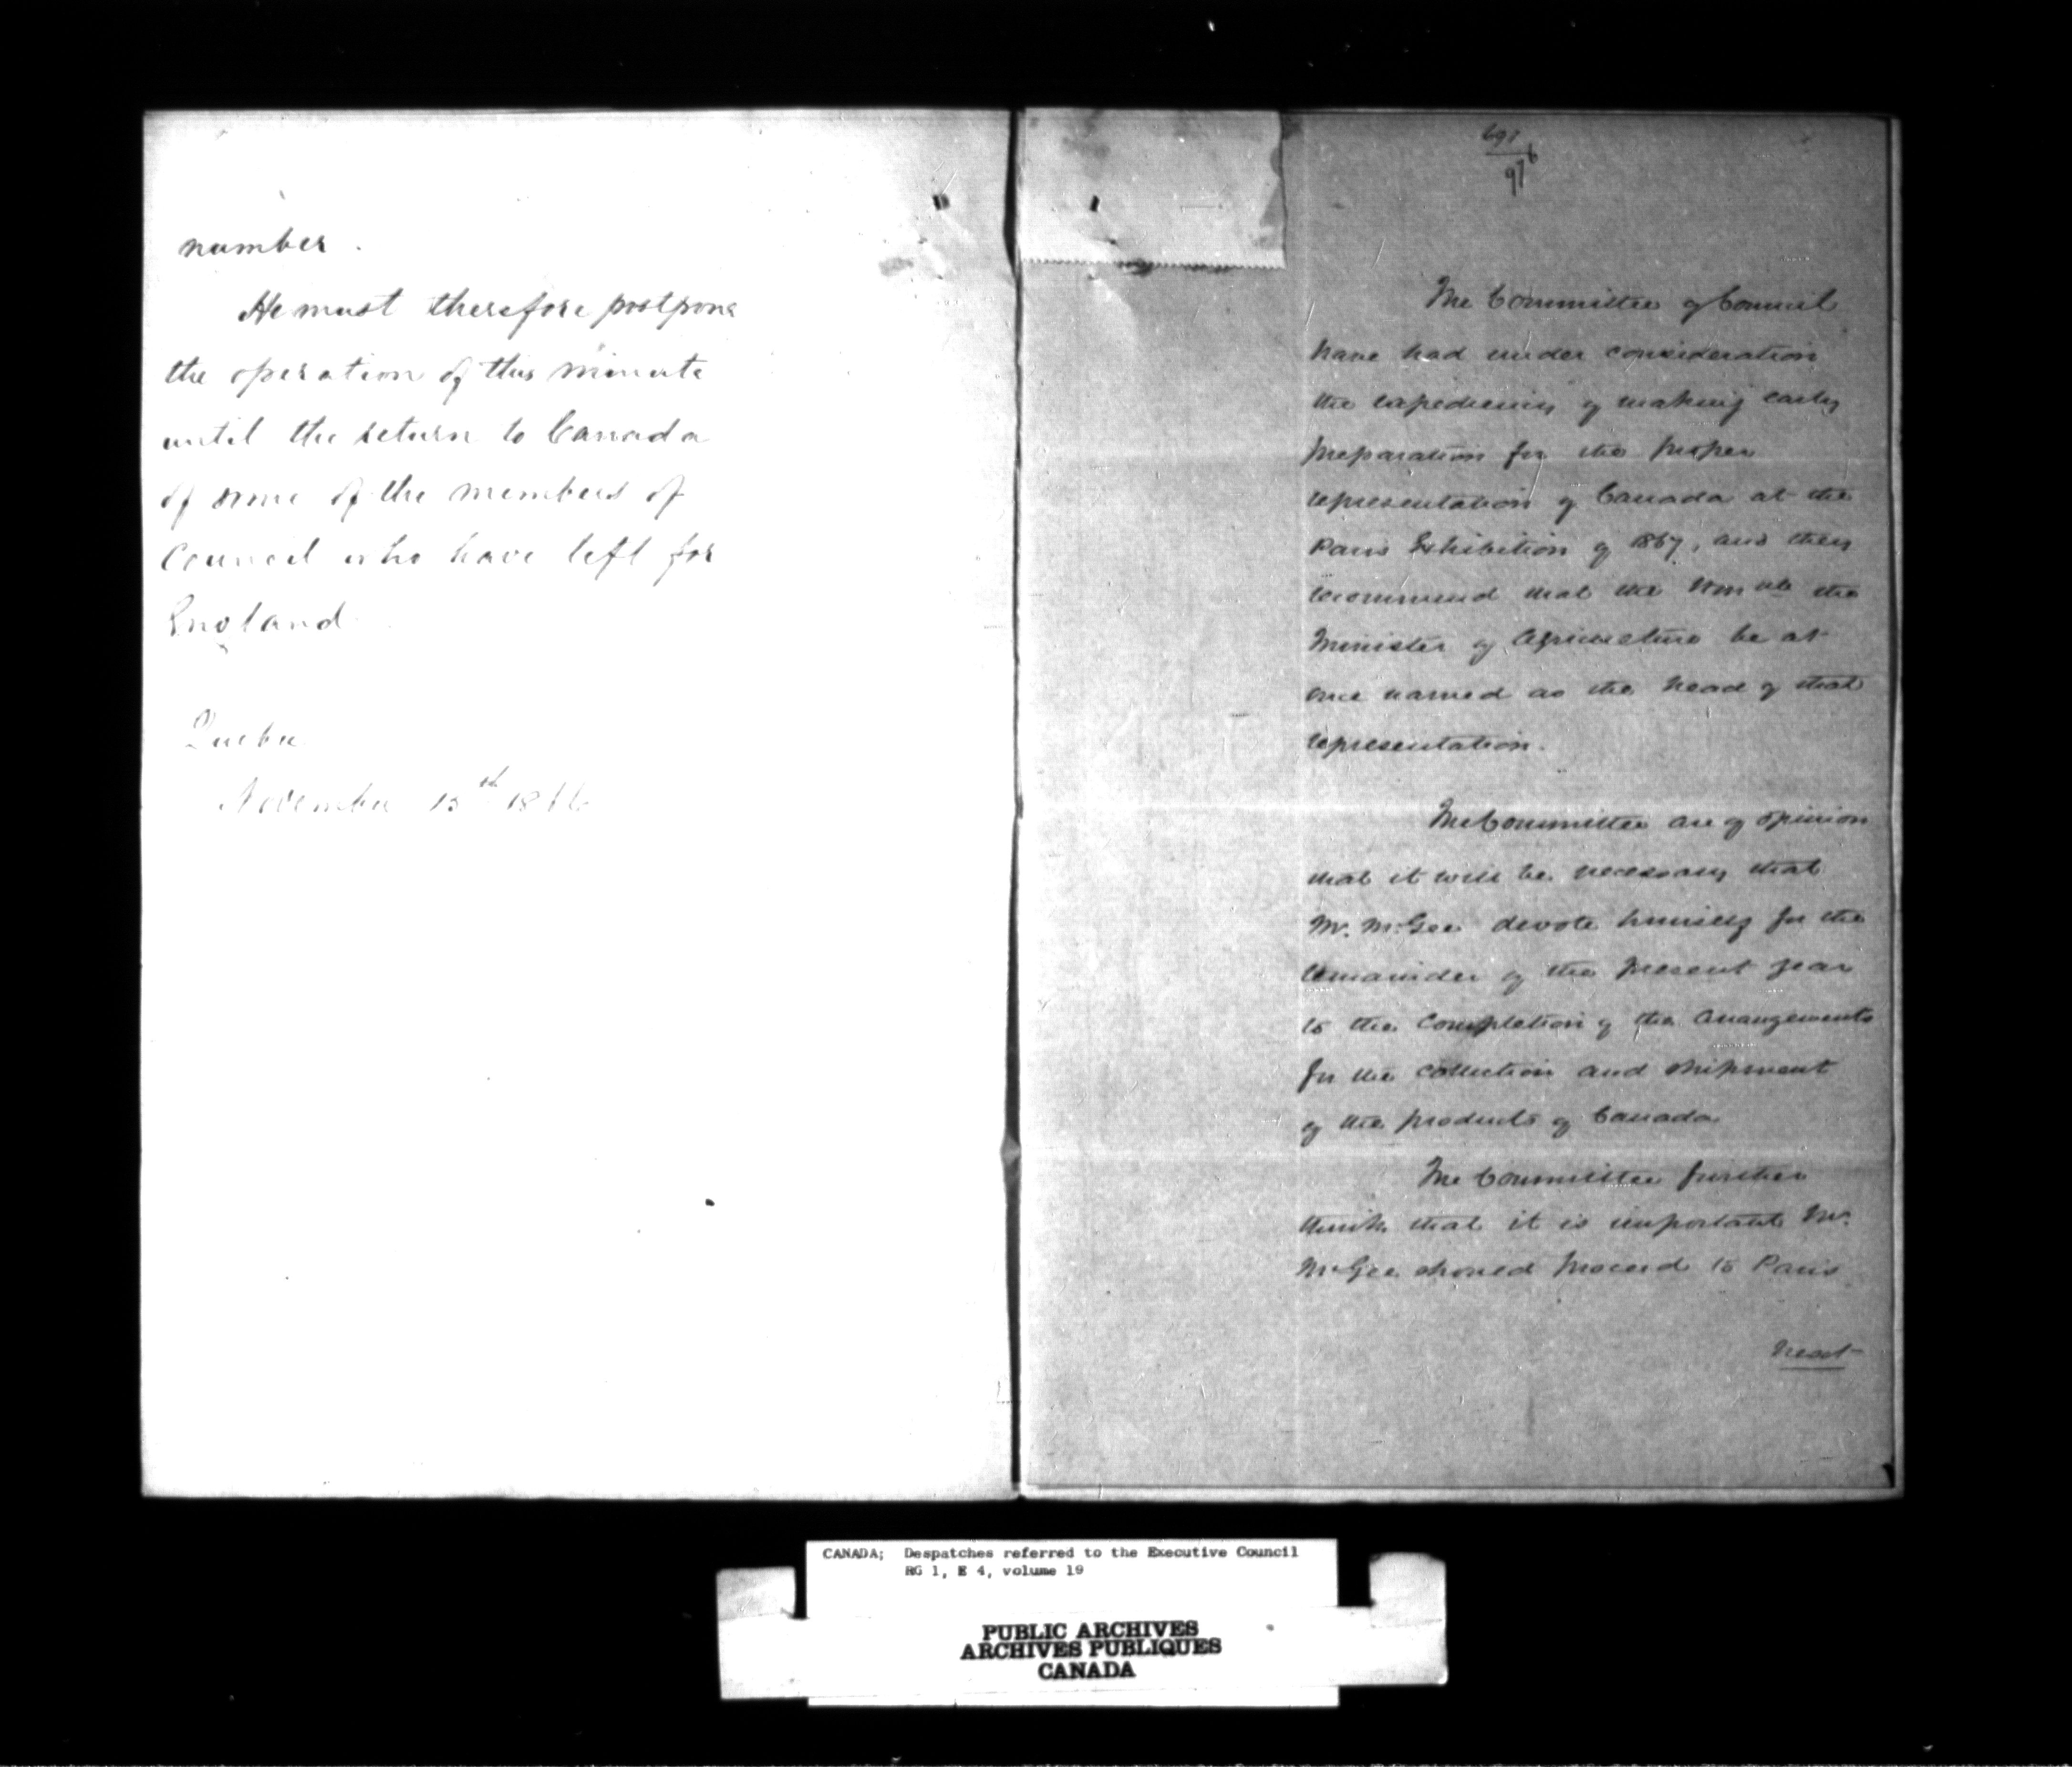 number.
He must therefore postpone
the operation of this minute
until the return to Canada
of some of the members of
Council who have left for
England.
Quebec
November 15th 1866
697
97 6
The Committee of Council
have had under consideration
the expediency of making early
preparation for the proper
representation of Canada at the
Paris Exhibition of 1867, and they
recommend that the Honble the
Minister of Agriculture be at
once named as the head of that
representation.
The Committee are of opinion
that it will be necessary that
Mr. McGee devote himself for the
remainder of the present year
to the completion of the arrangements
for the collection and shipment
of the products of Canada
The Committee further
think that it is important Mr.
McGee should proceed to Paris
next
CANADA; Despatches referred to the Executive Council
RG 1, E 4, volume 19
PUBLIC ARCHIVES
ARCHIVES PUBLIQUES
CANADA